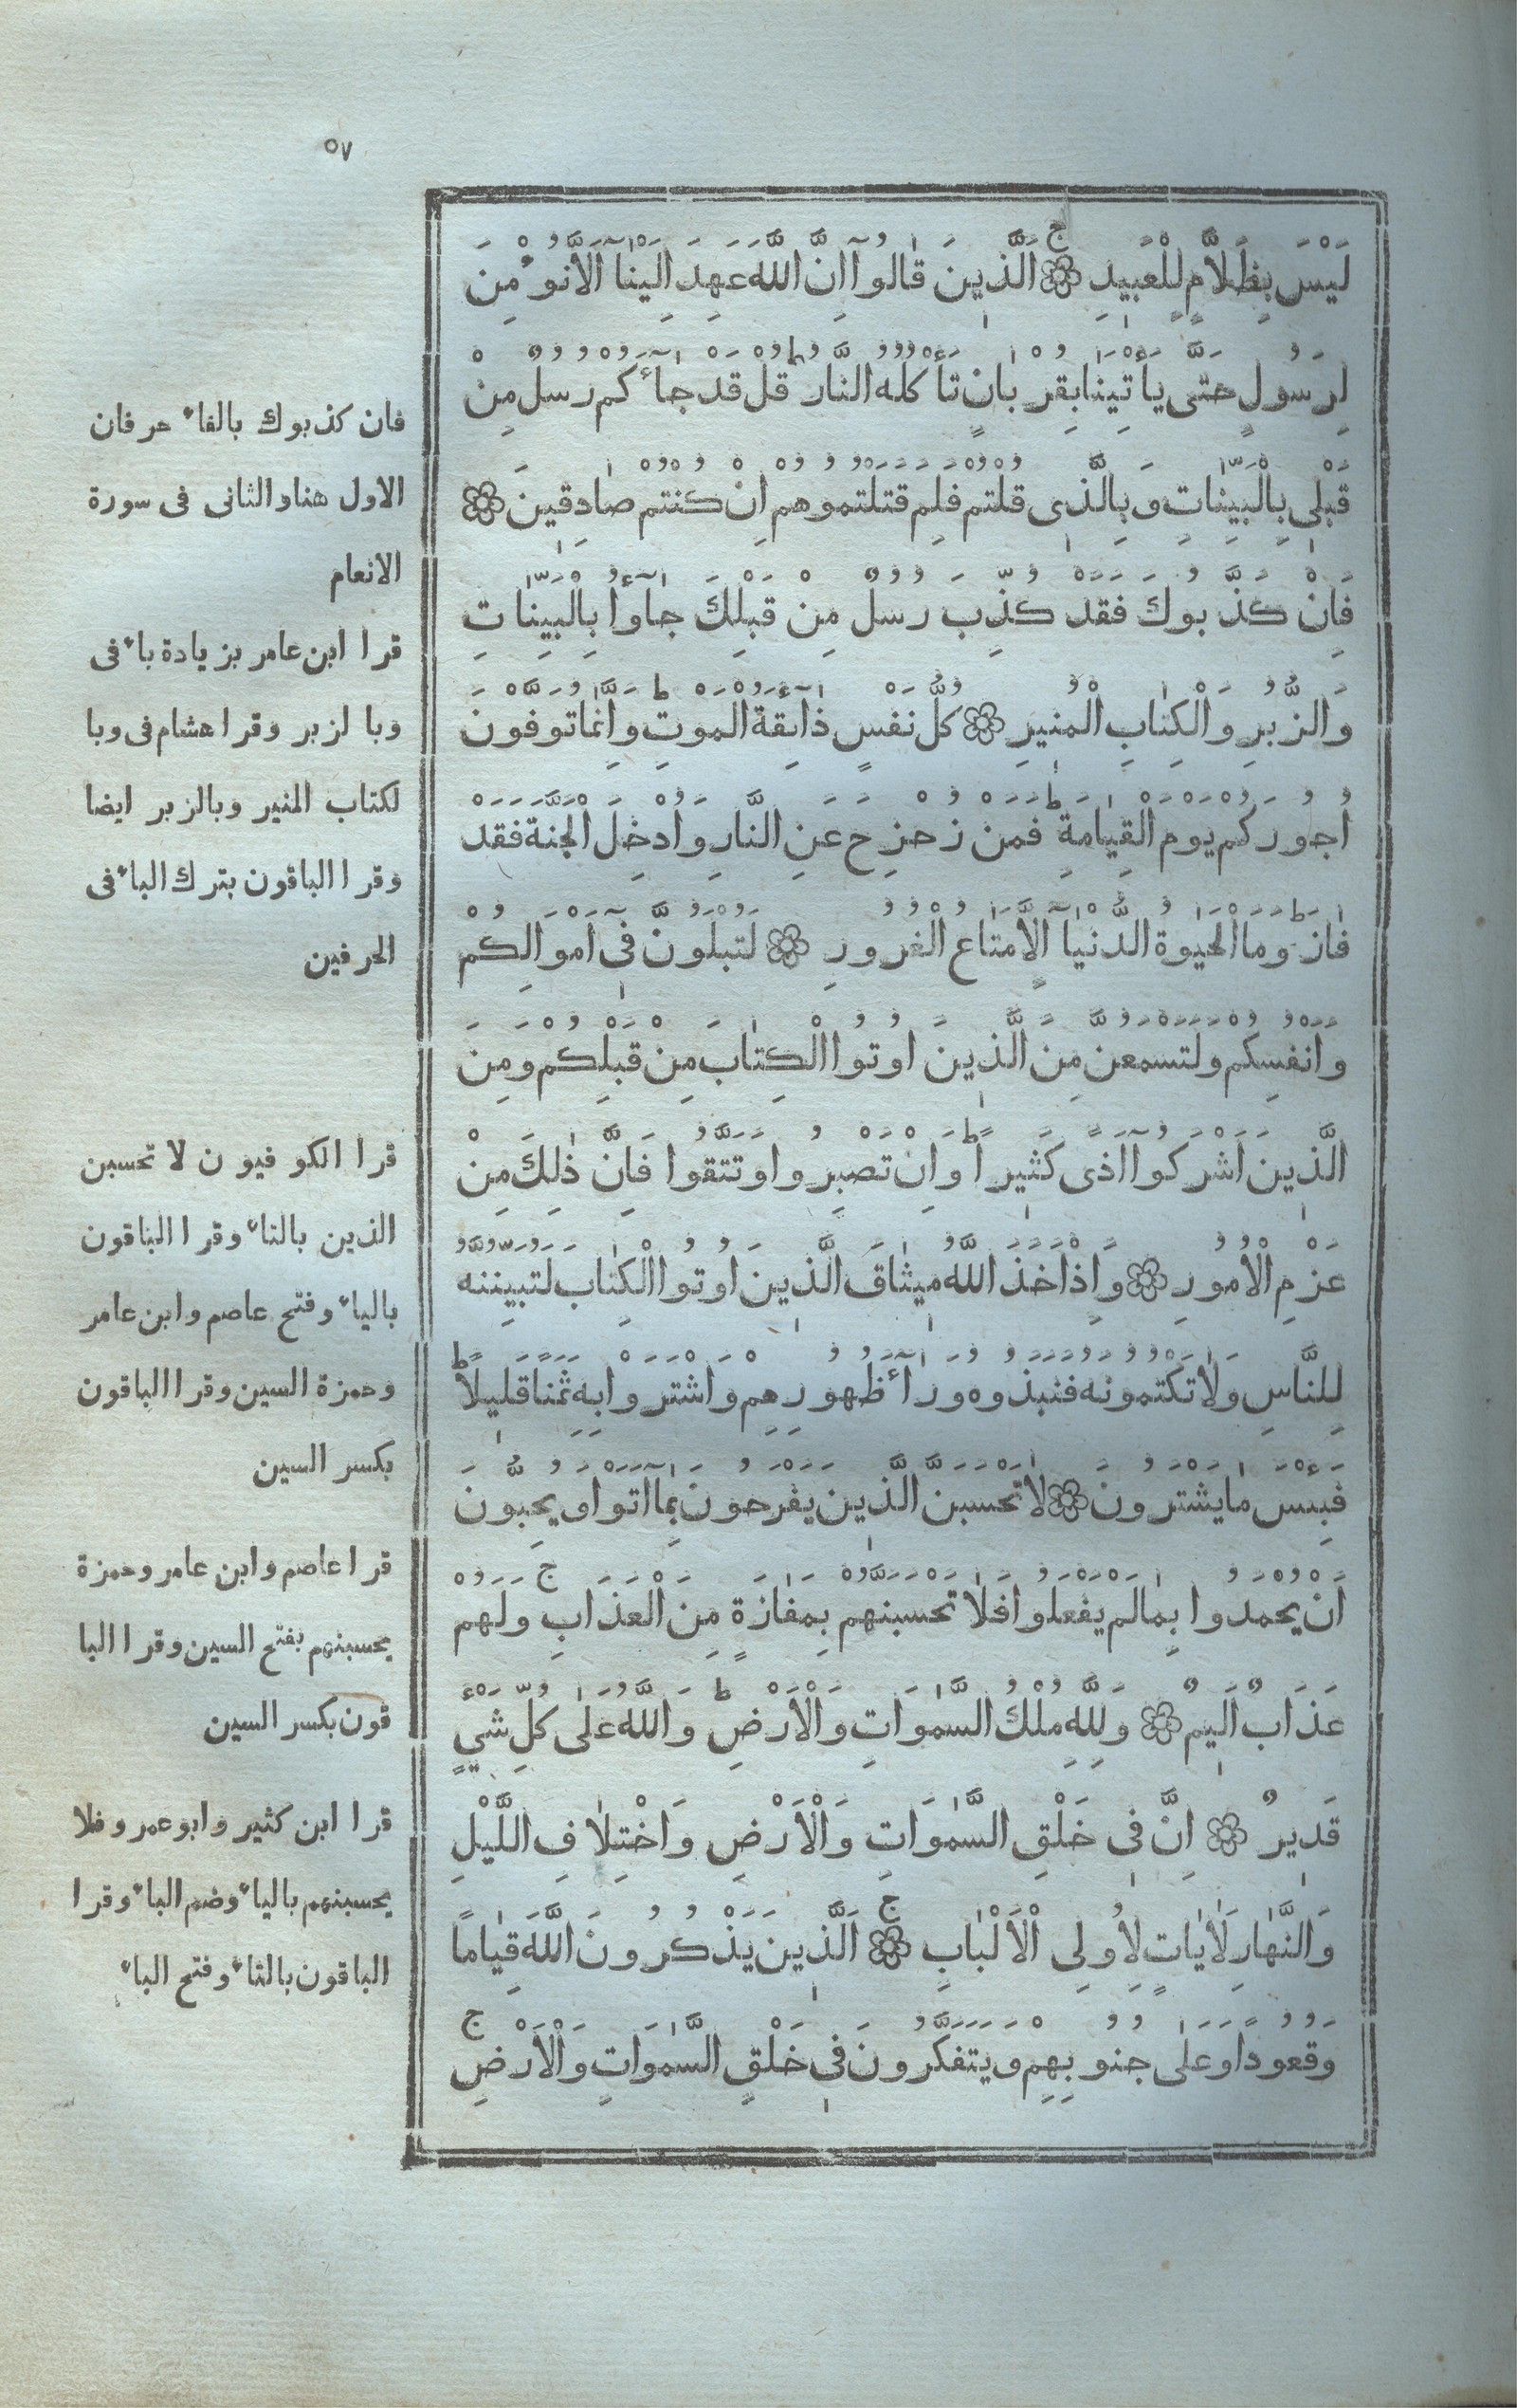 ٥٧
لَيْسَ بِظَلَّامٍ لِلْعَبِيدِ ۞ ج اَلَّذِينَ قَالُوآ اِنَّ اللَّهَ عَهِدَ اِلَيْنَا اَلَّا نُوْمِنَ
لِرَسُولٍ حَتَّى يَأْتِيَنَا بِقُرْبَانٍ تَأْكُلُهُ النَّارُ ط قُلْ قَدْ جَآءَكُمْ رُسُلٌ مِنْ
قَبْلِى بِالْبَيِّنَاتِ وَبِالَّذِى قُلْتُمْ فَلِمَ قَتَلْتُمُوهُمْ اِنْ كُنْتُمْ صَادِقِينَ ۞
فَاِنْ كَذَّبُوكَ فَقَدْ كُذِّبَ رُسُلٌ مِنْ قَبْلِكَ جَآءُوا بِالْبَيِّنَاتِ
وَالزُّبُرِ وَالْكِتَابِ الْمُنِيرِ ۞ كُلُّ نَفْسٍ ذَآئِقَةُ الْمَوْتِ ط وَاِنَّمَا تُوَفَّوْنَ
اُجُورَكُمْ يَوْمَ الْقِيَامَةِ ط فَمَنْ زُحْزِحَ عَنِ النَّارِ وَاُدْخِلَ الْجَنَّةَ فَقَدْ
فَازَ ط وَمَا الْحَيٰوةُ الدُّنْيَآ اِلَّا مَتَاعُ الْغُرُورِ ۞ لَتُبْلَوُنَّ فِىٓ اَمْوَالِكُمْ
وَاَنْفُسِكُمْ وَلَتَسْمَعُنَّ مِنَ الَّذِينَ اُوتُوا الْكِتَابَ مِنْ قَبْلِكُمْ وَمِنَ
الَّذِينَ اَشْرَكُوآ اَذًى كَثِيرًا ط وَاِنْ تَصْبِرُوا وَتَتَّقُوا فَاِنَّ ذٰلِكَ مِنْ
عَزْمِ الْاُمُورِ ۞ وَاِذْ اَخَذَ اللَّهُ مِيثَاقَ الَّذِينَ اُوتُوا الْكِتَابَ لَتُبَيِّنُنَّهُ
لِلنَّاسِ وَلَا تَكْتُمُونَهُ فَنَبَذُوهُ وَرَآءَ ظُهُورِهِمْ وَاشْتَرَوْا بِهِ ثَمَنًا قَلِيلًا ط
فَبِئْسَ مَا يَشْتَرُونَ ۞ لَا تَحْسَبَنَّ الَّذِينَ يَفْرَحُونَ بِمَآ اَتَوْا وَيُحِبُّونَ
اَنْ يُحْمَدُوا بِمَا لَمْ يَفْعَلُوا فَلَا تَحْسَبَنَّهُمْ بِمَفَازَةٍ مِنَ الْعَذَابِ ج وَلَهُمْ
عَذَابٌ اَلِيمٌ ۞ وَلِلَّهِ مُلْكُ السَّمٰوَاتِ وَالْاَرْضِ ط وَاللَّهُ عَلٰى كُلِّ شَيْءٍ
قَدِيرٌ ۞ اِنَّ فِى خَلْقِ السَّمٰوَاتِ وَالْاَرْضِ وَاخْتِلَافِ اللَّيْلِ
وَالنَّهَارِ لَاٰيَاتٍ لِاُولِى الْاَلْبَابِ ۞ ج اَلَّذِينَ يَذْكُرُونَ اللَّهَ قِيَامًا
وَقُعُودًا وَعَلٰى جُنُوبِهِمْ وَيَتَفَكَّرُونَ فِى خَلْقِ السَّمٰوَاتِ وَالْاَرْضِ ج
فان كذبوك بالفاء حرفان
الاول هنا والثانى فى سورة
الانعام
قرا ابن عامر بزيادة باء فى
وبا لزبر وقرا هشام فى وبا
لكتاب المنير وبالزبر ايضا
وقرا الباقون بترك الباء فى
الحرفين
قرا الكوفيون لا تحسبن
الذين بالتاء وقرا الباقون
بالياء وفتح عاصم وابن عامر
وحمزة السين وقرا الباقون
بكسر السين
قرا عاصم وابن عامر وحمزة
يحسبنهم بفتح السين وقرا البا
قون بكسر السين
قرا ابن كثير وابو عمر وفلا
يحسبنهم بالياء وضم الباء وقرا
الباقون بالتاء وفتح الباء